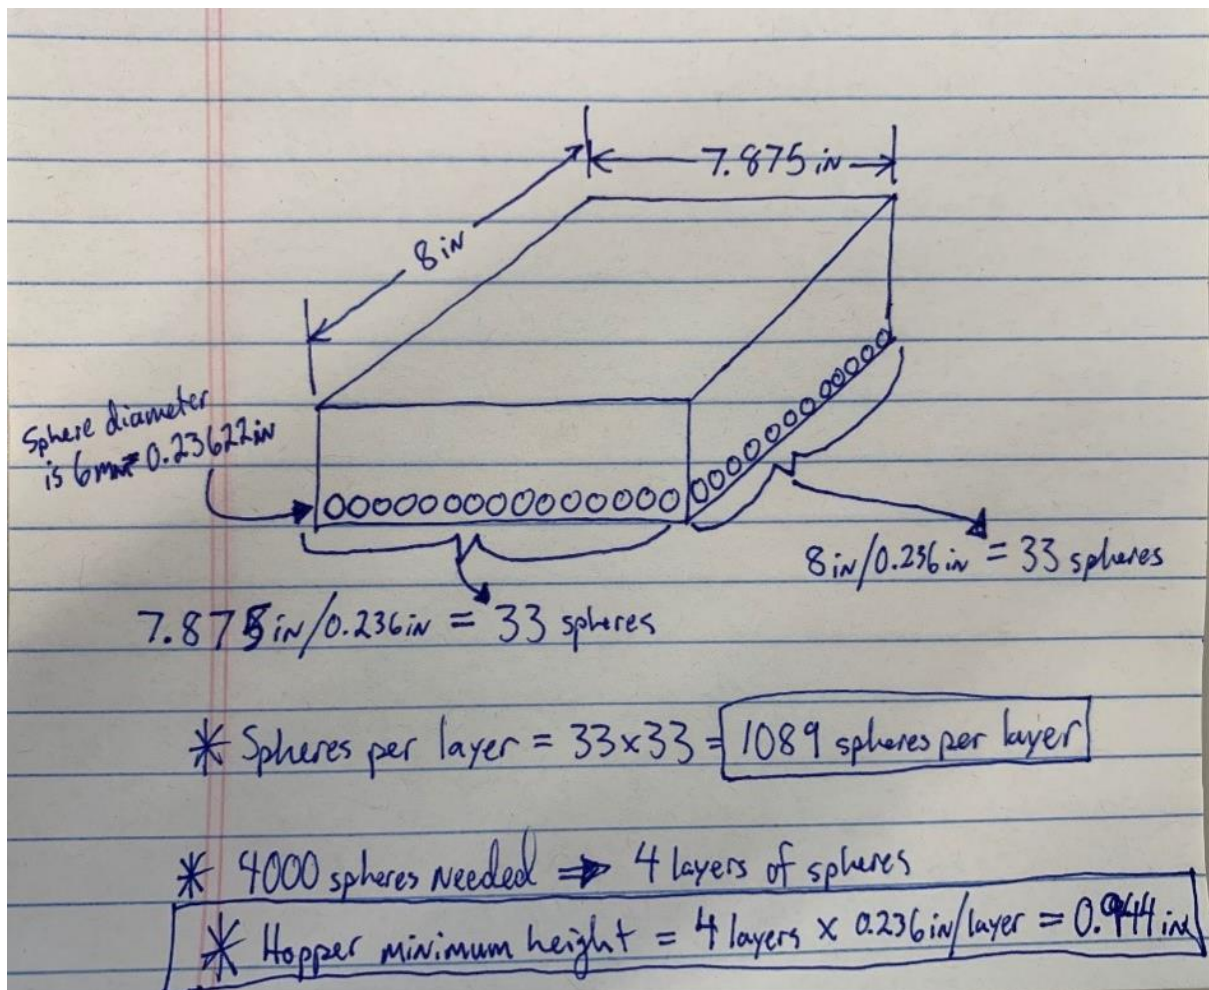 7.875 in
8 in
Sphere diameter
is 6mm=0.23622in
8in/0.236in = 33 spheres
7.875in/0.236in = 33 spheres
* Spheres per layer = 33x33 = 1089 spheres per layer
* 4000 spheres needed ⇒ 4 layers of spheres
* Hopper minimum height = 4 layers x 0.236in/layer = 0.944in